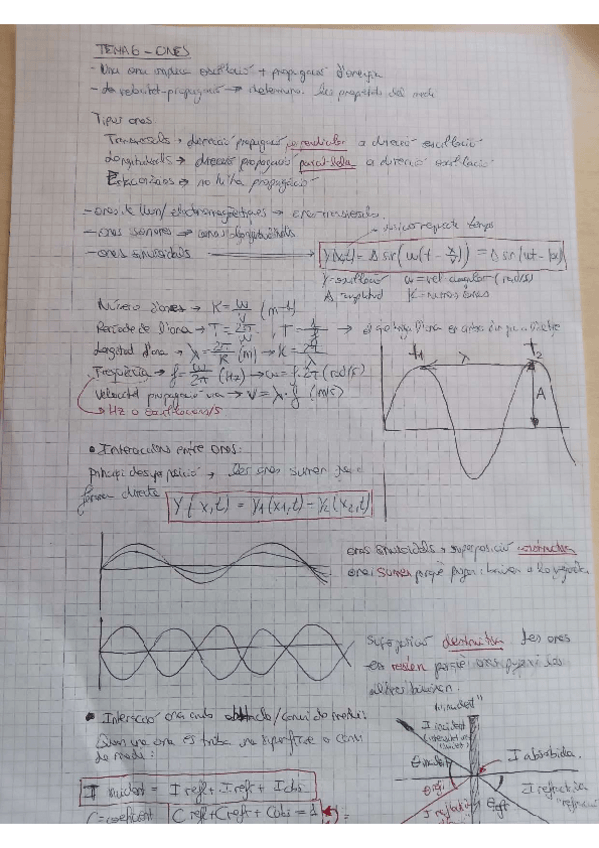 TEMA 6 - ONES
- Una ona implica oscil·lació + propagació d'energia
- La velocitat-propagació → determina les propietats del medi
Tipus ones
Transversals → direcció propagació perpendicular a direcció oscil·lació
Longitudinals → direcció propagació paral·lela a direcció oscil·lació
Estacionàries → no hi ha propagació
- ones de llum/electromagnètiques → ona transversal
- ones sonores → ones longitudinals
- ones sinusoidals → y(x,t) = A sin(w(t - x/v)) = A sin(wt - kx)
y = oscil·lació w = vel. angular (rad/s)
A = amplitud K = número d'ones
Número d'ones → K = w/v (m-1)
Període de l'ona → T = 2π/w , T = 1/f →
Longitud d'ona → λ = 2π/K (m) → K = 2π/λ
Freqüència → f = w/2π (Hz) → w = f·2π (rad/s)
Velocitat propagació ona → v = λ·f (m/s)
Hz o oscil·lacions/s
t1 λ t2
A
• Interaccions entre ones:
Principi de superposició → les ones sumen
forma directa y(x,t) = y1(x1,t) - y2(x2,t)
ones sinusoidals → superposició constructiva
ones sumen perquè pugen i baixen a la vegada
Superposició destructiva les ones
es resten perquè
altres baixen.
• Interacció ona amb obstacle/canvi de medi:
Quan una ona es troba una superfície o canvi
de medi:
I incident = I refl + I refr + I abs
C = coeficient C refl + C refr + C abs = 1
I incident
I absorbida
I refractada